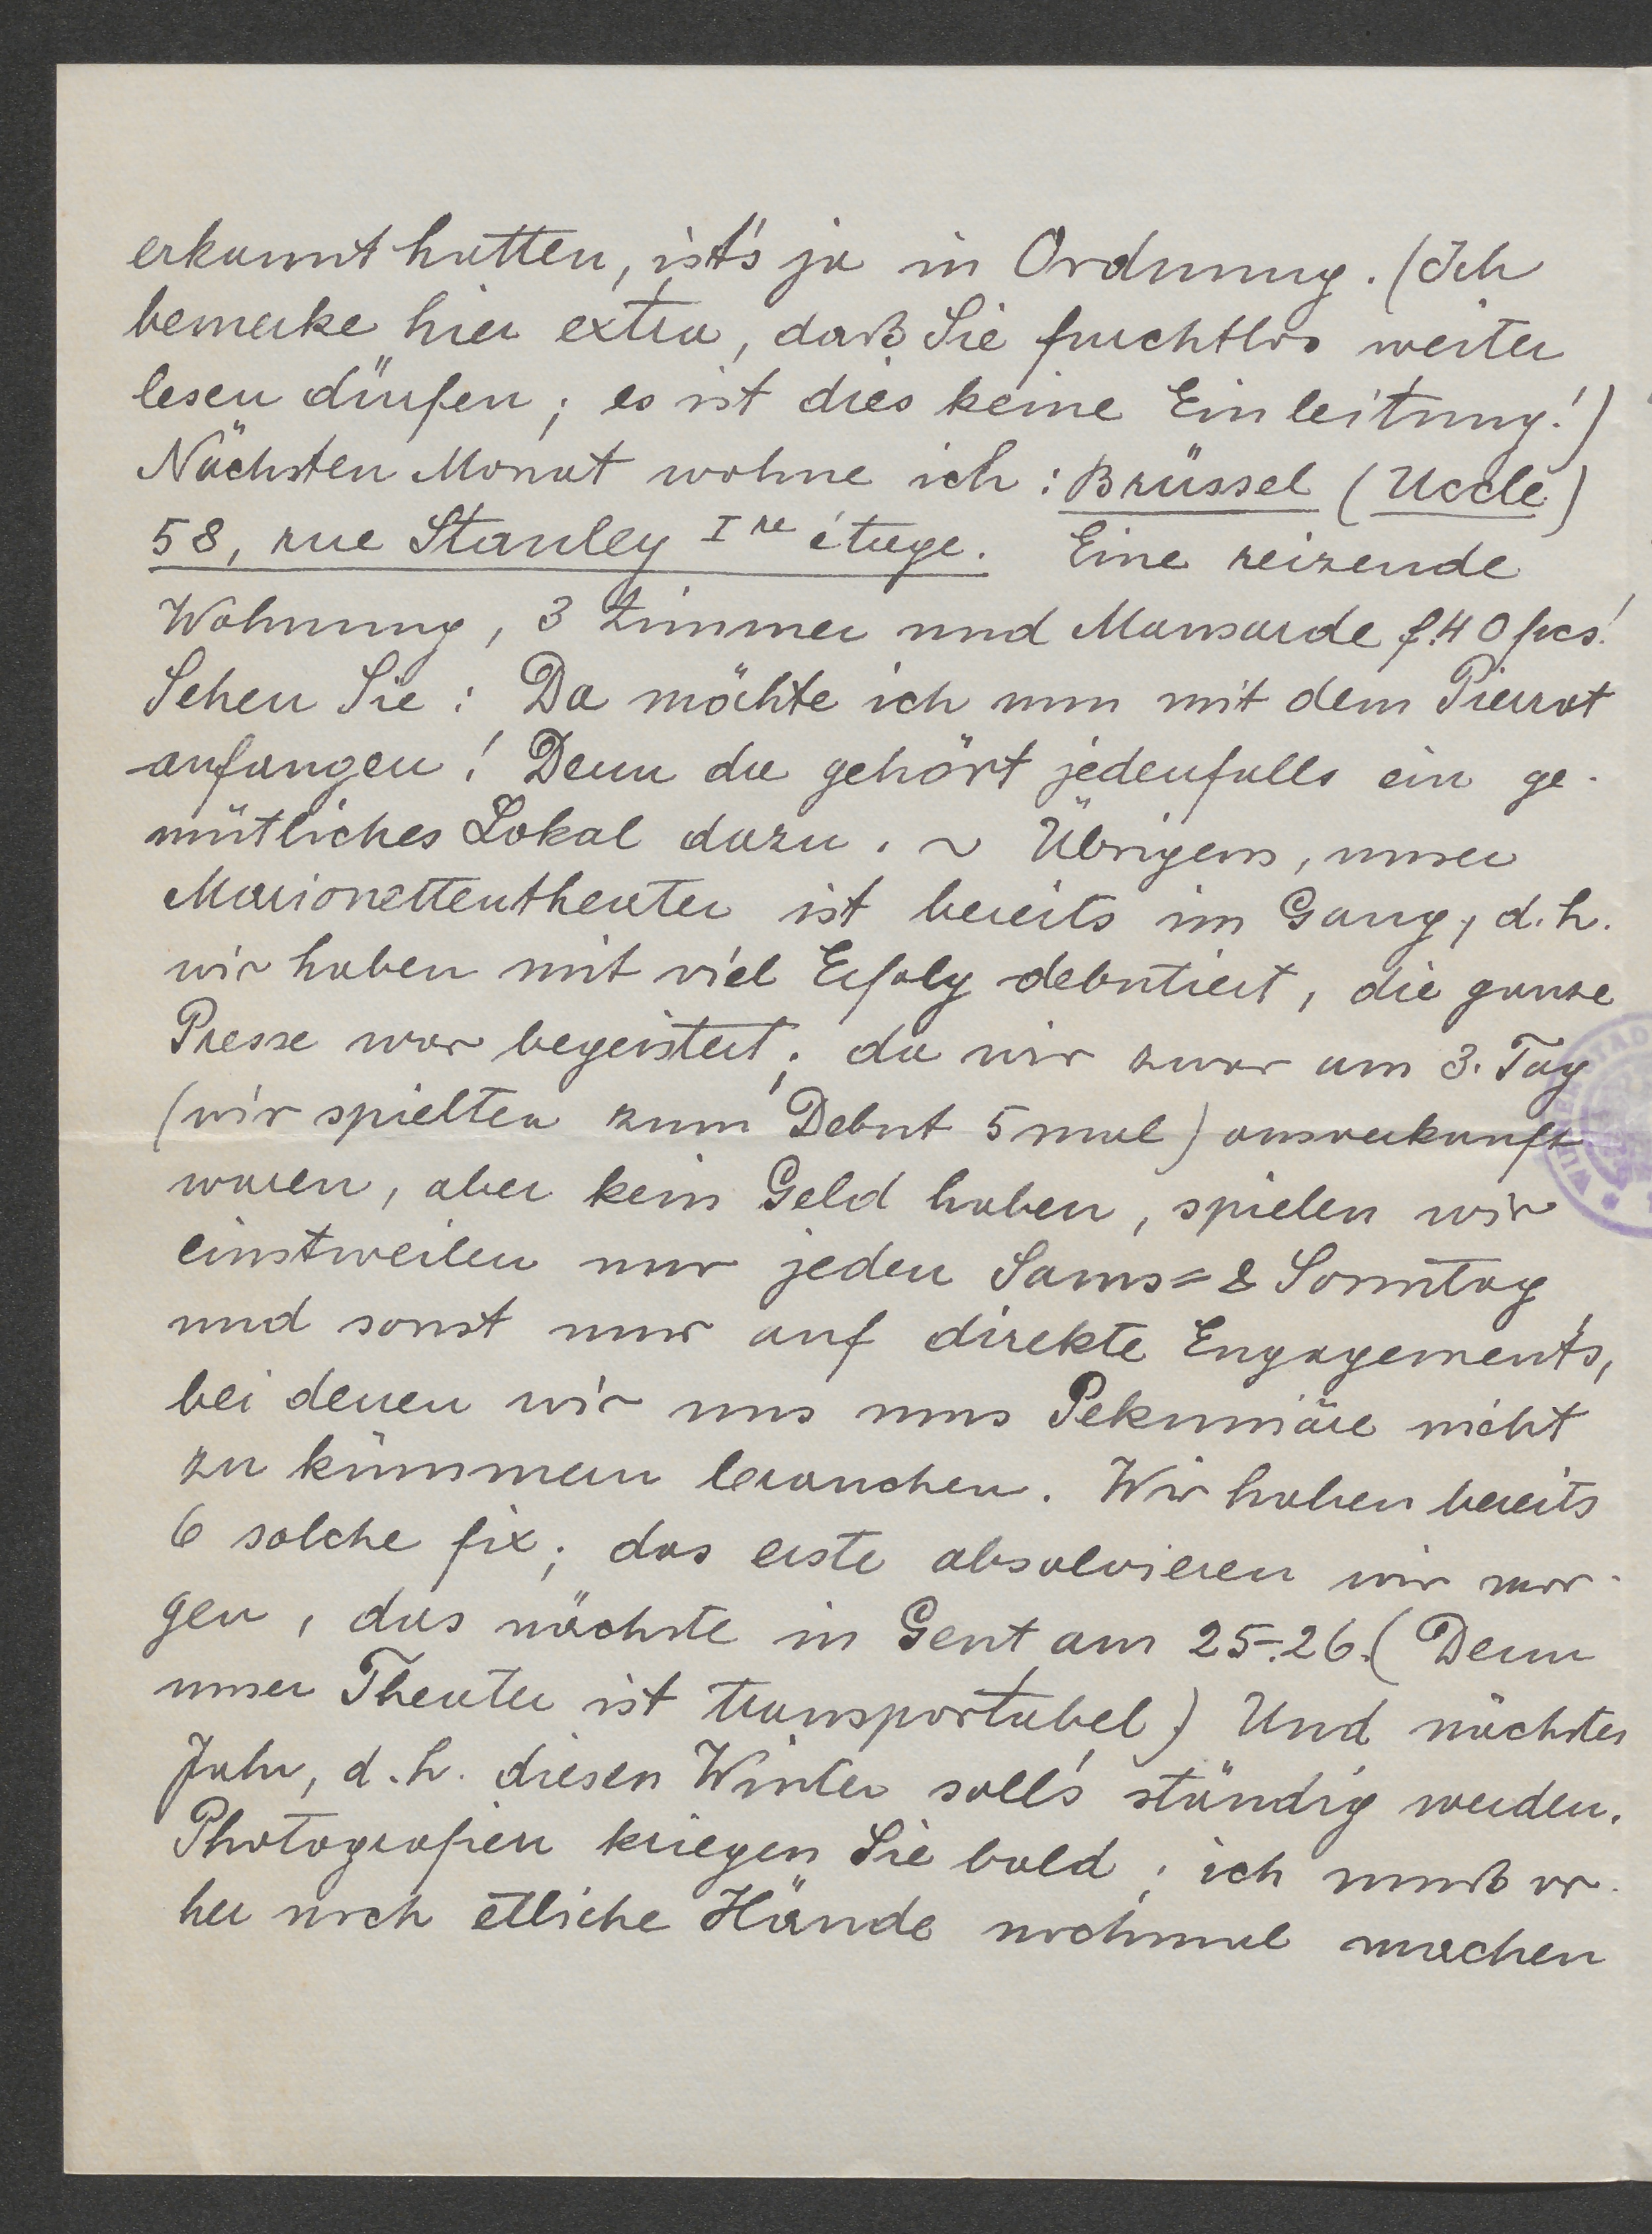 erkannt hatten, ist's ja in Ordnung. (Ich
bemerke hier extra, daß Sie furchtlos weiter
lesen dürfen; es ist dies keine Einleitung!)
Nächsten Monat wohne ich: Brüssel (Uccle)
58, rue Stanley Ire étage. Eine reizende
Wohnung, 3 Zimmer und Mansarde f. 40 frcs!
Sehen Sie: Da möchte ich nun mit dem Pierrot
anfangen! Denn da gehört jedenfalls ein ge-
mütliches Lokal dazu. ~ Übrigens, unser
Marionettentheater ist bereits im Gang, d.h.
wir haben mit viel Erfolg debutiert, die ganze
Presse war begeistert; da wir zwar am 3. Tag
(wir spielten zum Debut 5 mal) ausverkauft
waren, aber kein Geld haben, spielen wir
einstweilen nur jeden Sams= & Sonntag
und sonst nur auf direkte Engagements,
bei denen wir uns ums Pekuniäre nicht
zu kümmern brauchen. Wir haben bereits
6 solche fix; das erste absolvieren wir mor-
gen, das nächste in Gent am 25-.26. (Denn
unser Theater ist transportabel) Und nächstes
Jahr, d.h. diesen Winter soll's ständig werden.
Photografien kriegen Sie bald; ich muß vor-
her noch etliche Hände nochmal machen